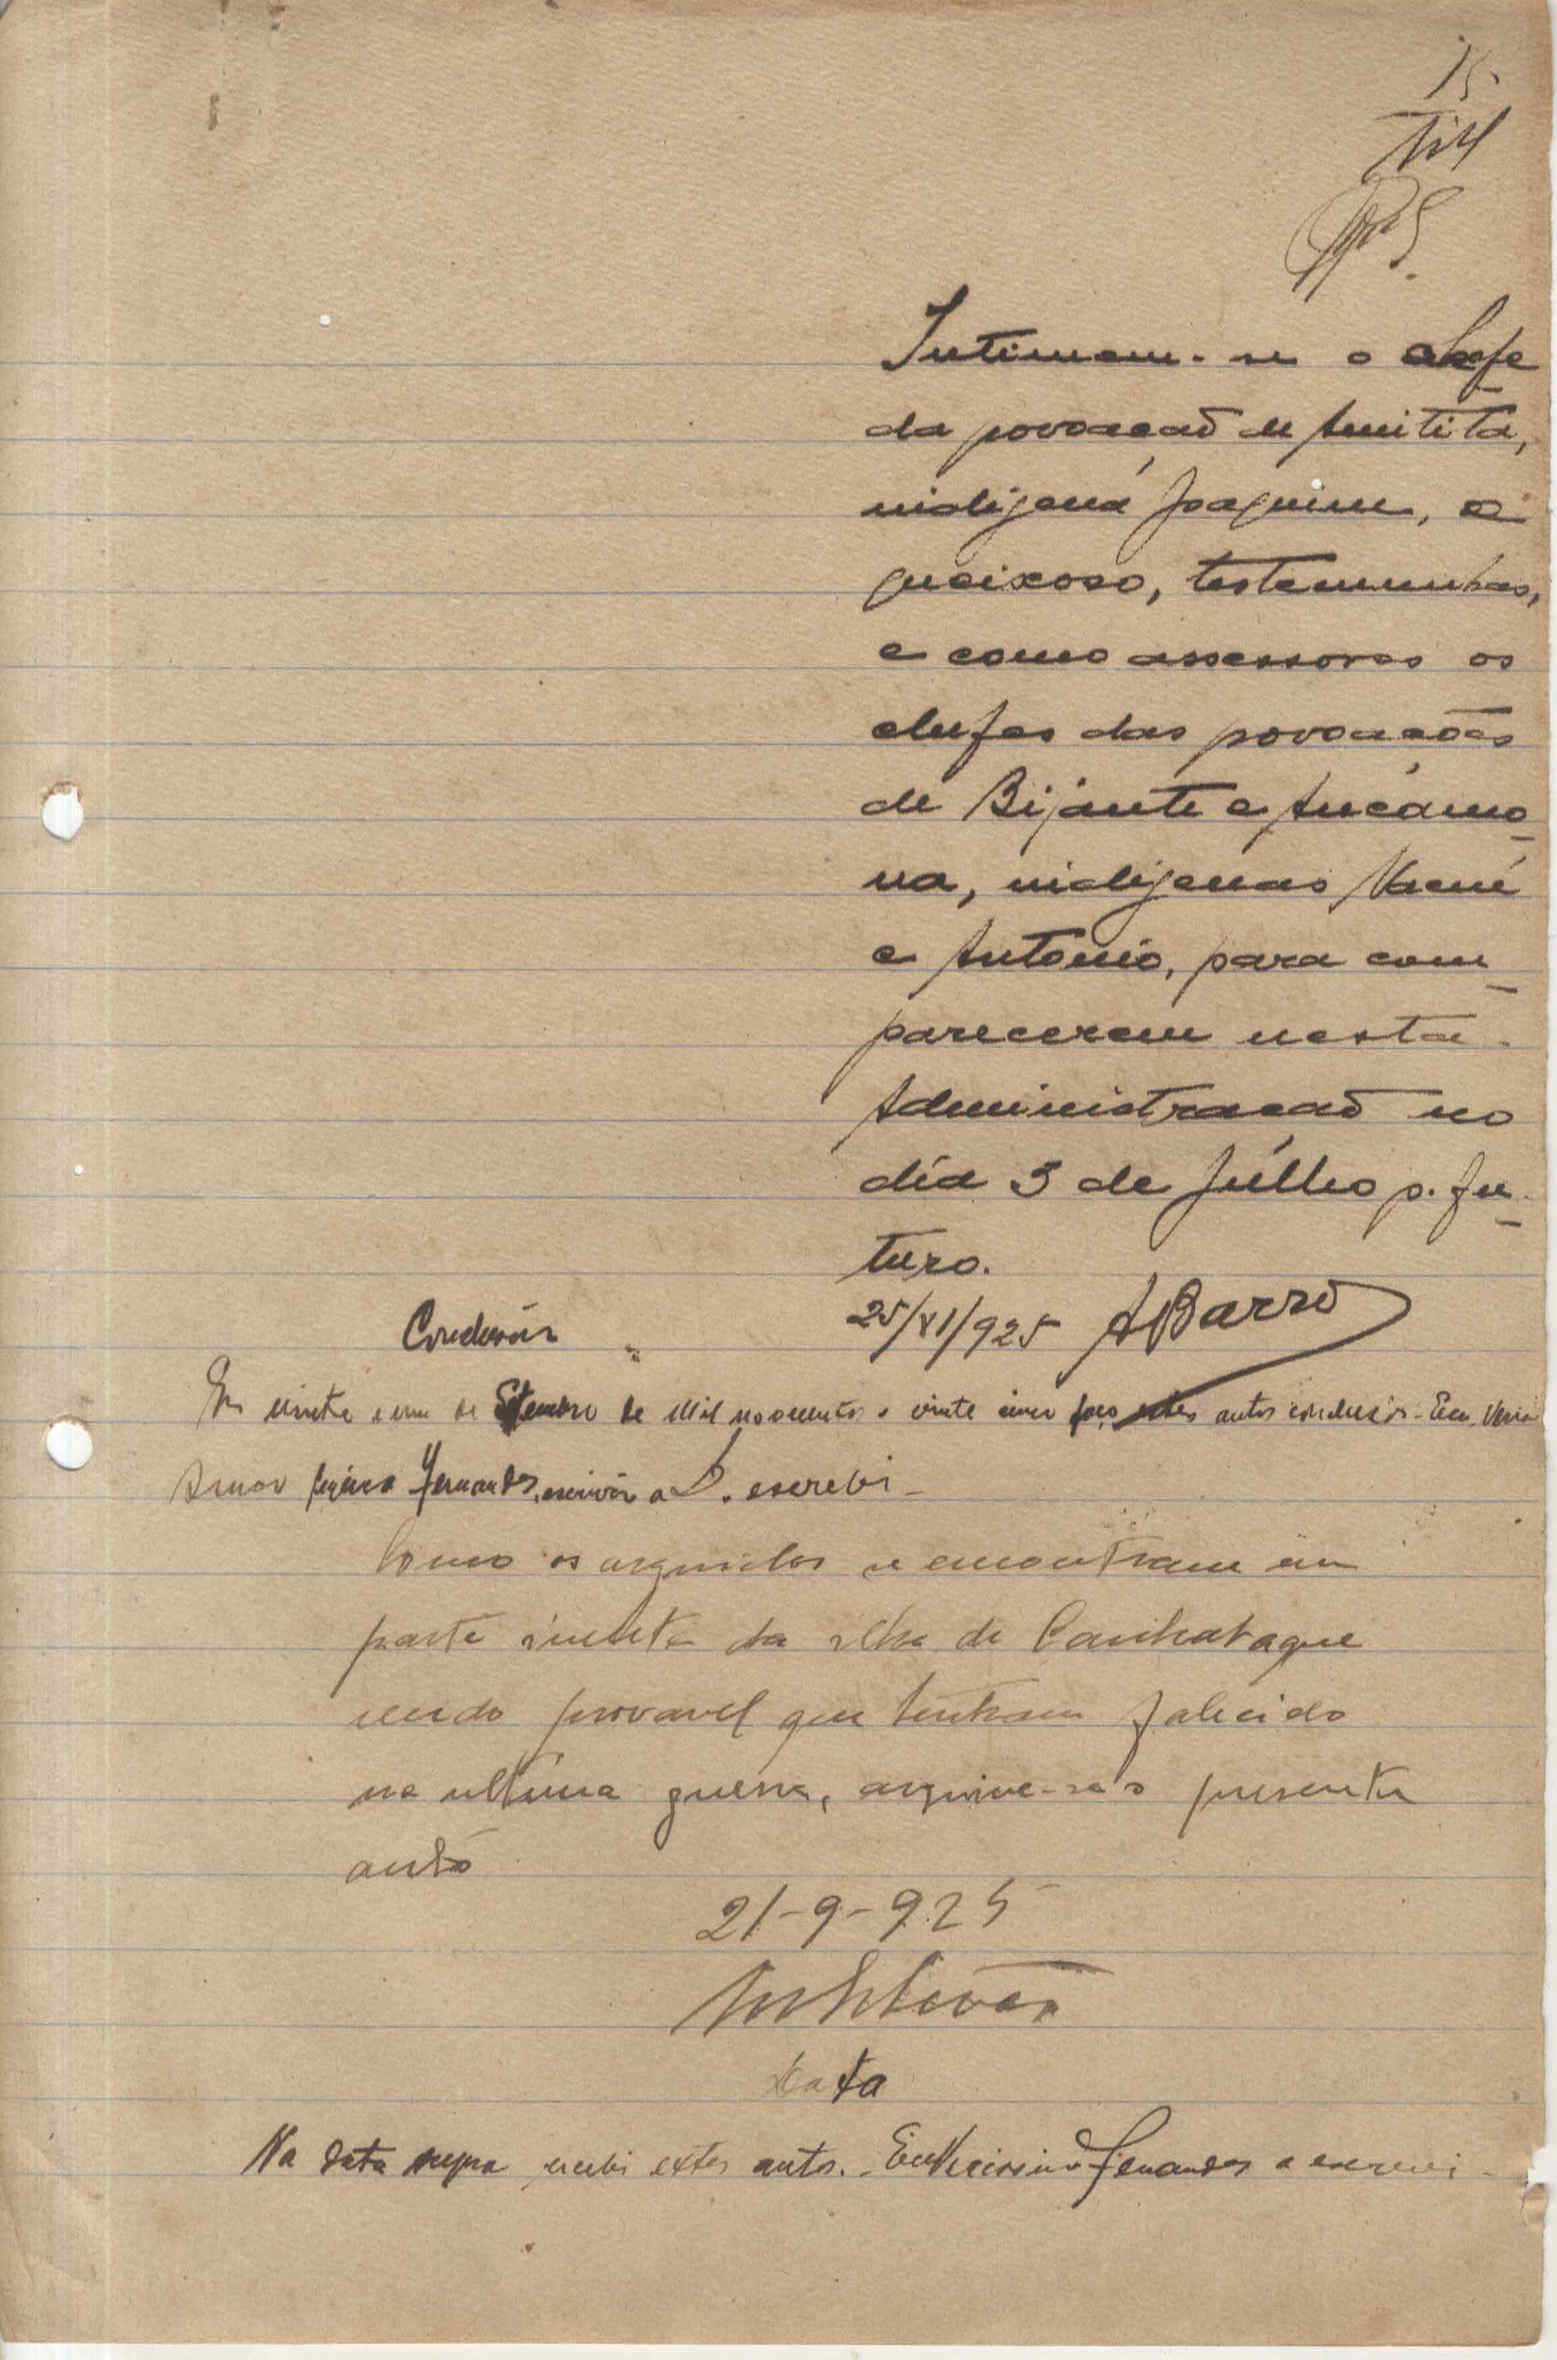 15
Intimem-se o chefe
da povoação de Ancitita,
indigena Joaquim, o
queixoso, testemunhas,
e como assessores os
chefes das povoações
de Bijante e Ancámo-
na, indigenas Uané
e António, para com-
parecerem nesta
Administração no
dia 3 de Júlho p. fu-
turo.
25/VI/925 ABarro
Conclusão
Em vinte e um de Setembro de mil novecentos e vinte cinco faço estes autos conclusos. Eu,
Fernandes, escrivão a D. escrebi
Como os arguidos se encontram em
parte incerta da ilha de Canhabaque
sendo provavel que tenham falecido
na ultima guerra, arquive-se o presente
auto
21-9-925
Data
Na data supra recebi estes autos. Eu Verissimo Fernandes o escrevi